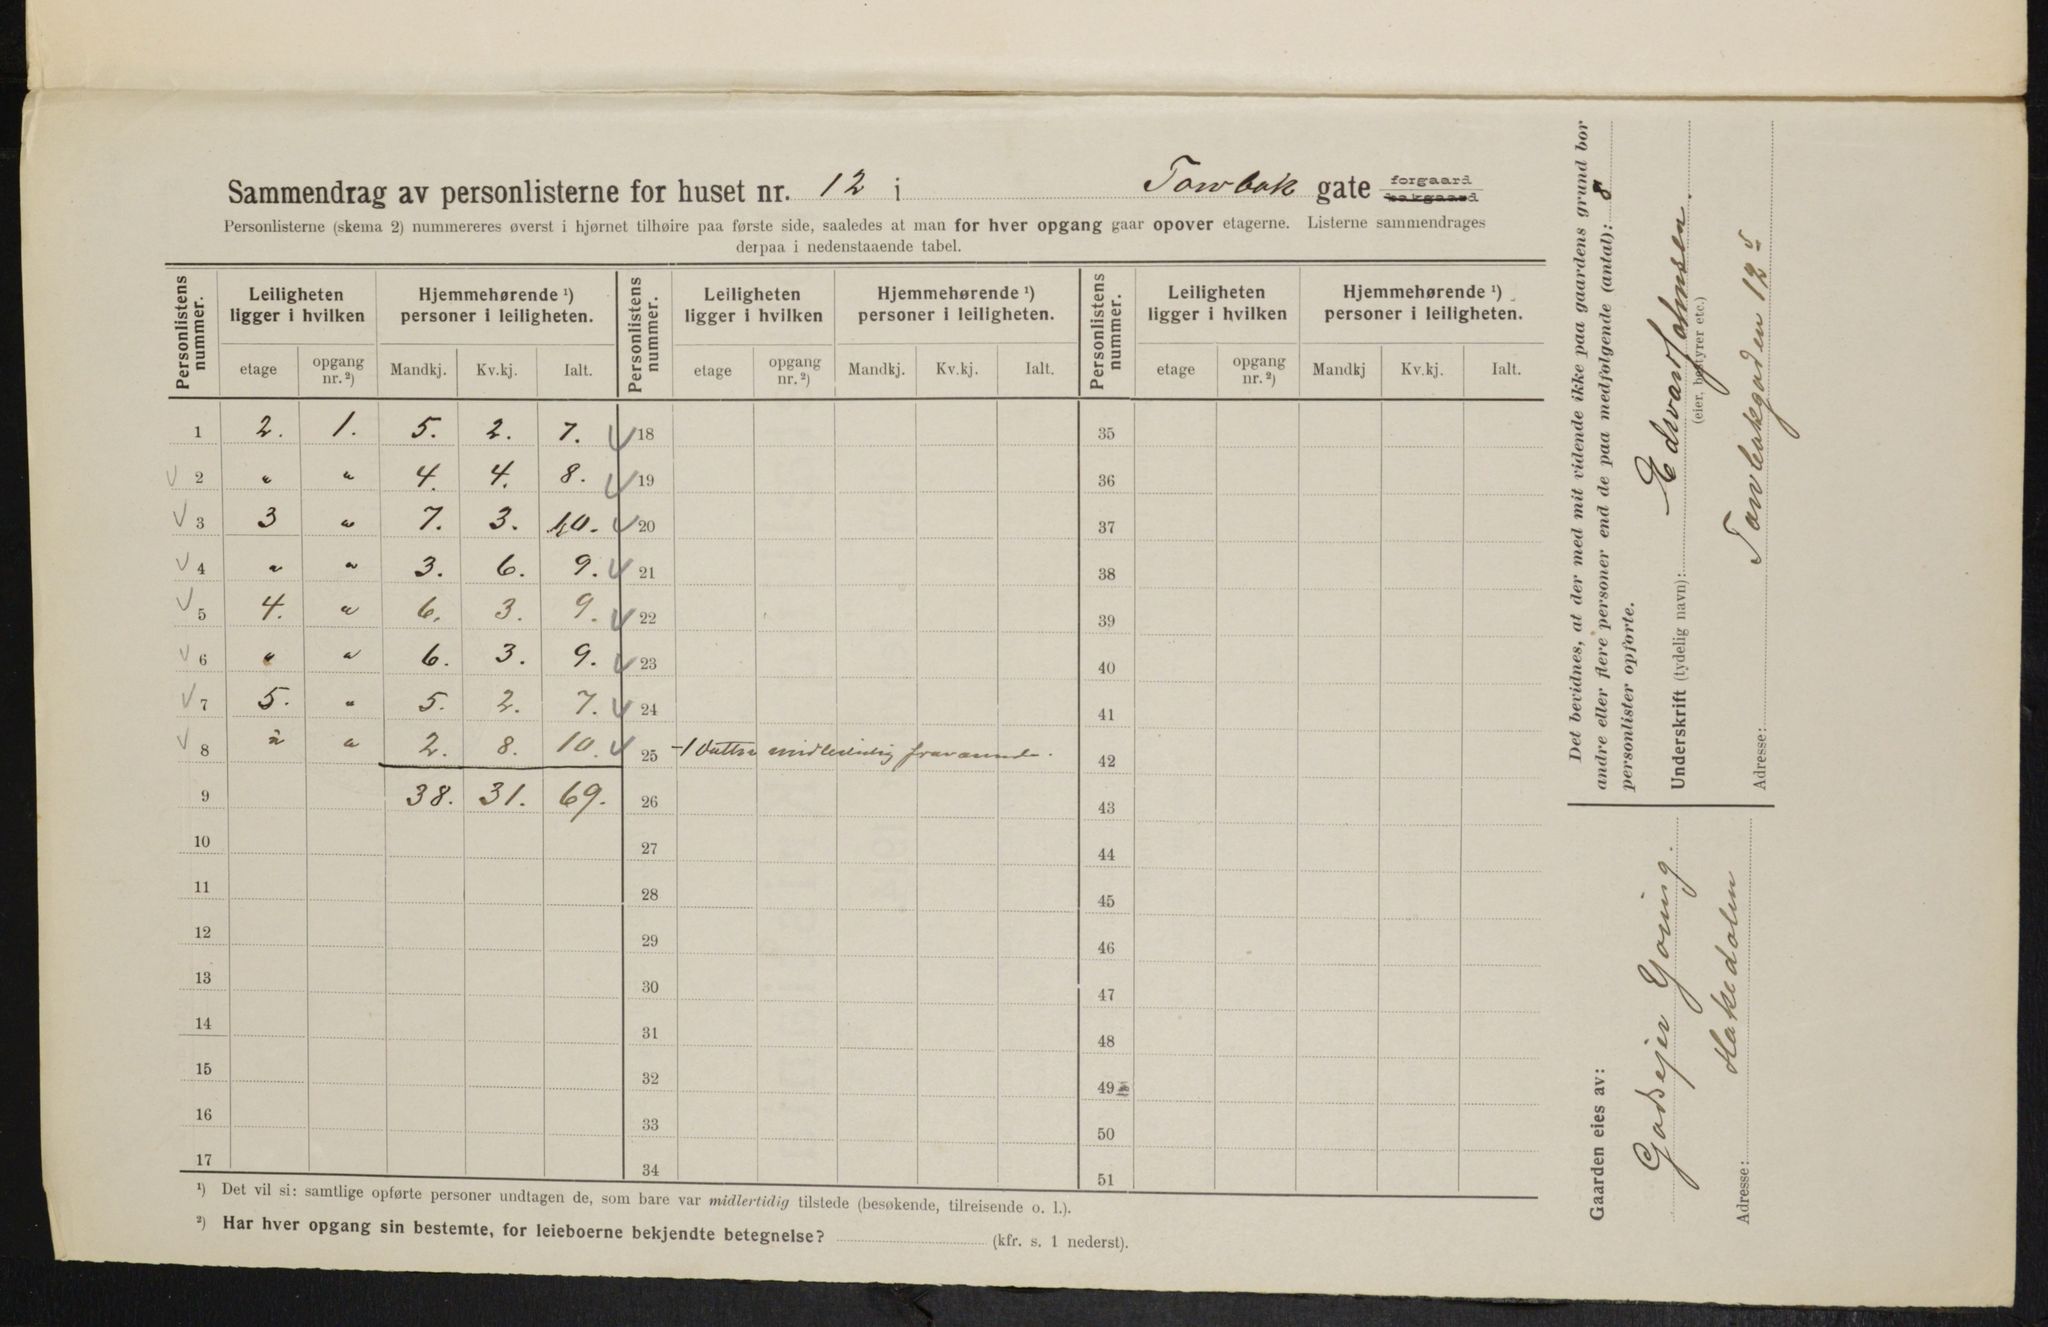 Sammendrag av personlisterne for huset nr. 12 i Torvbak gate forgaard bakgaard
Personlisterne (skema 2) nummereres øverst i hjørnet tilhøire paa første side, saaledes at man for hver opgang gaar opover etagerne. Listerne sammendrages
derpaa i nedenstaaende tabel.
Personlistens nummer. Leiligheten ligger i hvilken Hjemmehørende ¹) personer i leiligheten. Personlistens nummer. Leiligheten ligger i hvilken Hjemmehørende ¹) personer i leiligheten. Personlistens nummer. Leiligheten ligger i hvilken Hjemmehørende ¹) personer i leiligheten.
etage opgang nr. ²) Mandkj. Kv.kj. Ialt. etage opgang nr. ²) Mandkj. Kv.kj. Ialt. etage opgang nr. ²) Mandkj Kv.kj. Ialt.
1 2. 1. 5. 2. 7. 18 35
2 " " 4. 4. 8. 19 36
3 3 " 7. 3. 10. 20 37
4 " " 3. 6. 9. 21 38
5 4. " 6. 3. 9. 22 39
6 " " 6. 3. 9. 23 40
7 5. " 5. 2. 7. 24 41
8 " " 2. 8. 10. 25 -1 datter midlertidig fraværende. 42
9 38. 31. 69. 26 43
10 27 44
11 28 45
12 29 46
13 30 47
14 31 48
15 32 49
16 33 50
17 34 51
¹) Det vil si: samtlige opførte personer undtagen de, som bare var midlertidig tilstede (besøkende, tilreisende o. l.).
²) Har hver opgang sin bestemte, for leieboerne bekjendte betegnelse? (kfr. s. 1 nederst).
Det bevidnes, at der med mit vidende ikke paa gaardens grund bor
andre eller flere personer end de paa medfølgende (antal): 8
personlister opførte.
Underskrift (tydelig navn): Edvard Johnsen.
(eier, bestyrer etc.)
Adresse: Torvbakgaden 12
Gaarden eies av:
Gadsejer Goning.
Adresse: Hakedalen